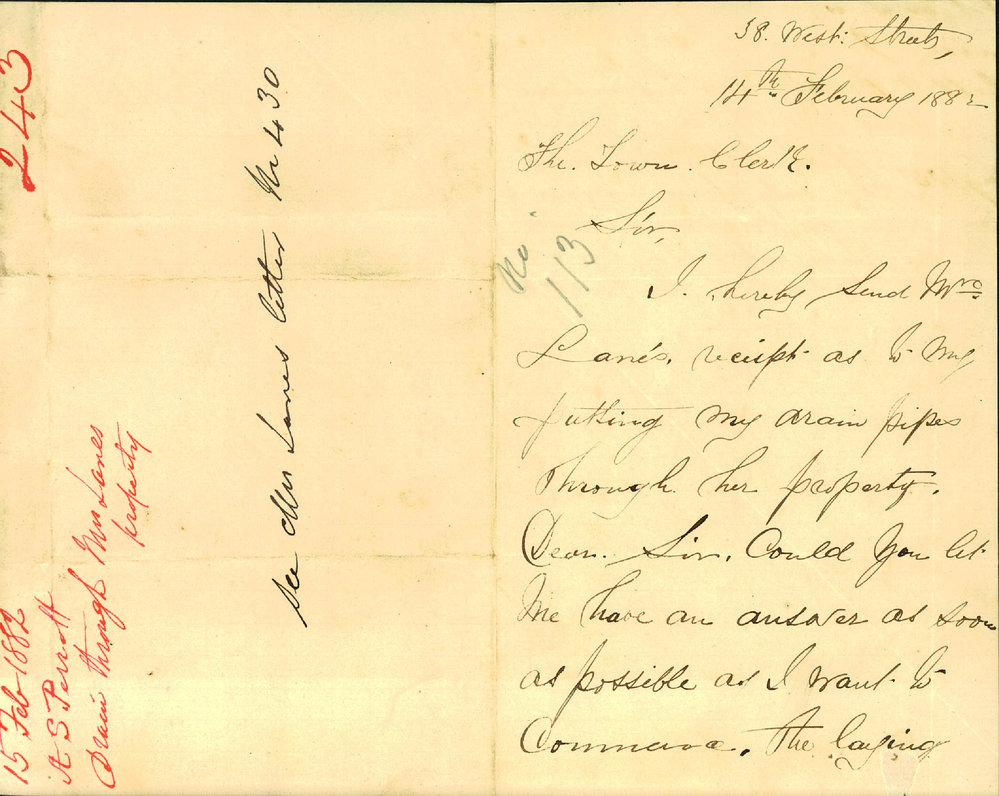 243
15 Feb 1882
A S Perrott
Drain through Mrs Lanes
property
See Mrs Lanes letter No 430
38. West. Street,
14th February 1882
The. Town. Clerk.
Sir,
No. 113
I. hereby send Mrs
Lane's. reciept as to my
putting my drain pipes
through her property.
Dear. Sir. Could you let
me have an answer as soon
as possible as I want to
Commence. The laying